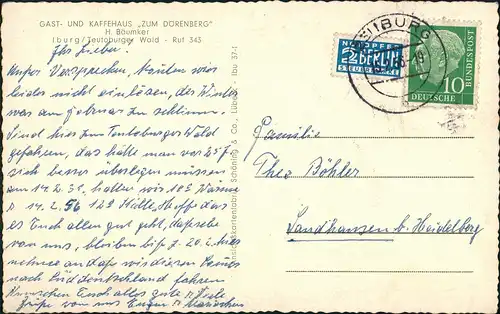 GAST- UND KAFFEHAUS „ZUM DÖRENBERG"
H. Bäumker
Iburg/Teutoburger Wald - Ruf 343
Ihr Lieben.
Unser Versprechen, konnten wir
leider nicht einlösen, der Winter
war am Februar zu schlimm.
Sind hier zum Teutoburger Wald
gefahren, das hätte man vor 25 J
sich besser überlegen müssen
am 14.2. 31. hatten wir 10% Wärme
14/2. 56 12% Hoffe das
es Euch allen gut geht, dasselbe
von uns, bleiben bis z. 20.2. hier
nehme an das wir diesen
nach Süddeutschland fahren
Wünschen Euch alles gute Viele
Grüße von uns
Ansichtskartenfabrik Schöning & Co., Lübeck Ibu 37/1
NOTOPFER
2 BERLIN
STEUERMARKE
IBURG
DEUTSCHE BUNDESPOST
10
Familie
Theo Böhler
Sandhausen b. Heidelberg